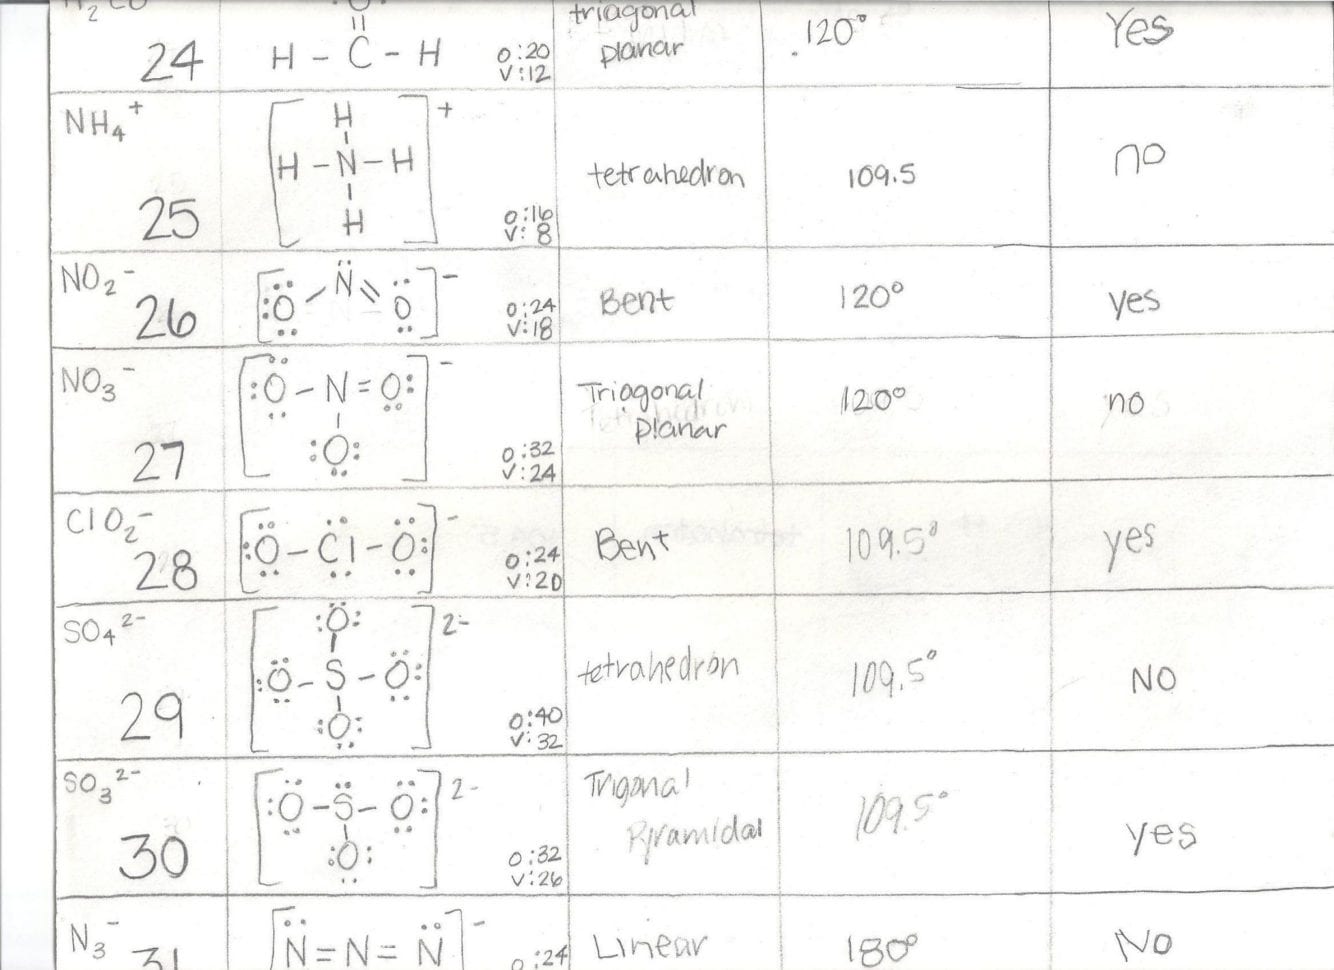 H2CO
24
O
||
H - C - H
O:20
V:12
triagonal
planar
120°
Yes
NH4+
25
[H
H - N - H
H]+
O:16
V:8
tetrahedron
109.5
no
NO2-
26
[O - N = O]-
O:24
V:18
Bent
120°
yes
NO3-
27
[O - N = O
O]-
O:32
V:24
Triagonal
planar
120°
no
ClO2-
28
[O - Cl - O]-
O:24
V:20
Bent
109.5°
yes
SO4 2-
29
[O
O - S - O
O] 2-
O:40
V:32
tetrahedron
109.5°
NO
SO3 2-
30
[O - S - O
O] 2-
O:32
V:26
Trigonal
Pyramidal
109.5°
yes
N3-
31
[N = N = N]-
O:24
Linear
180°
No